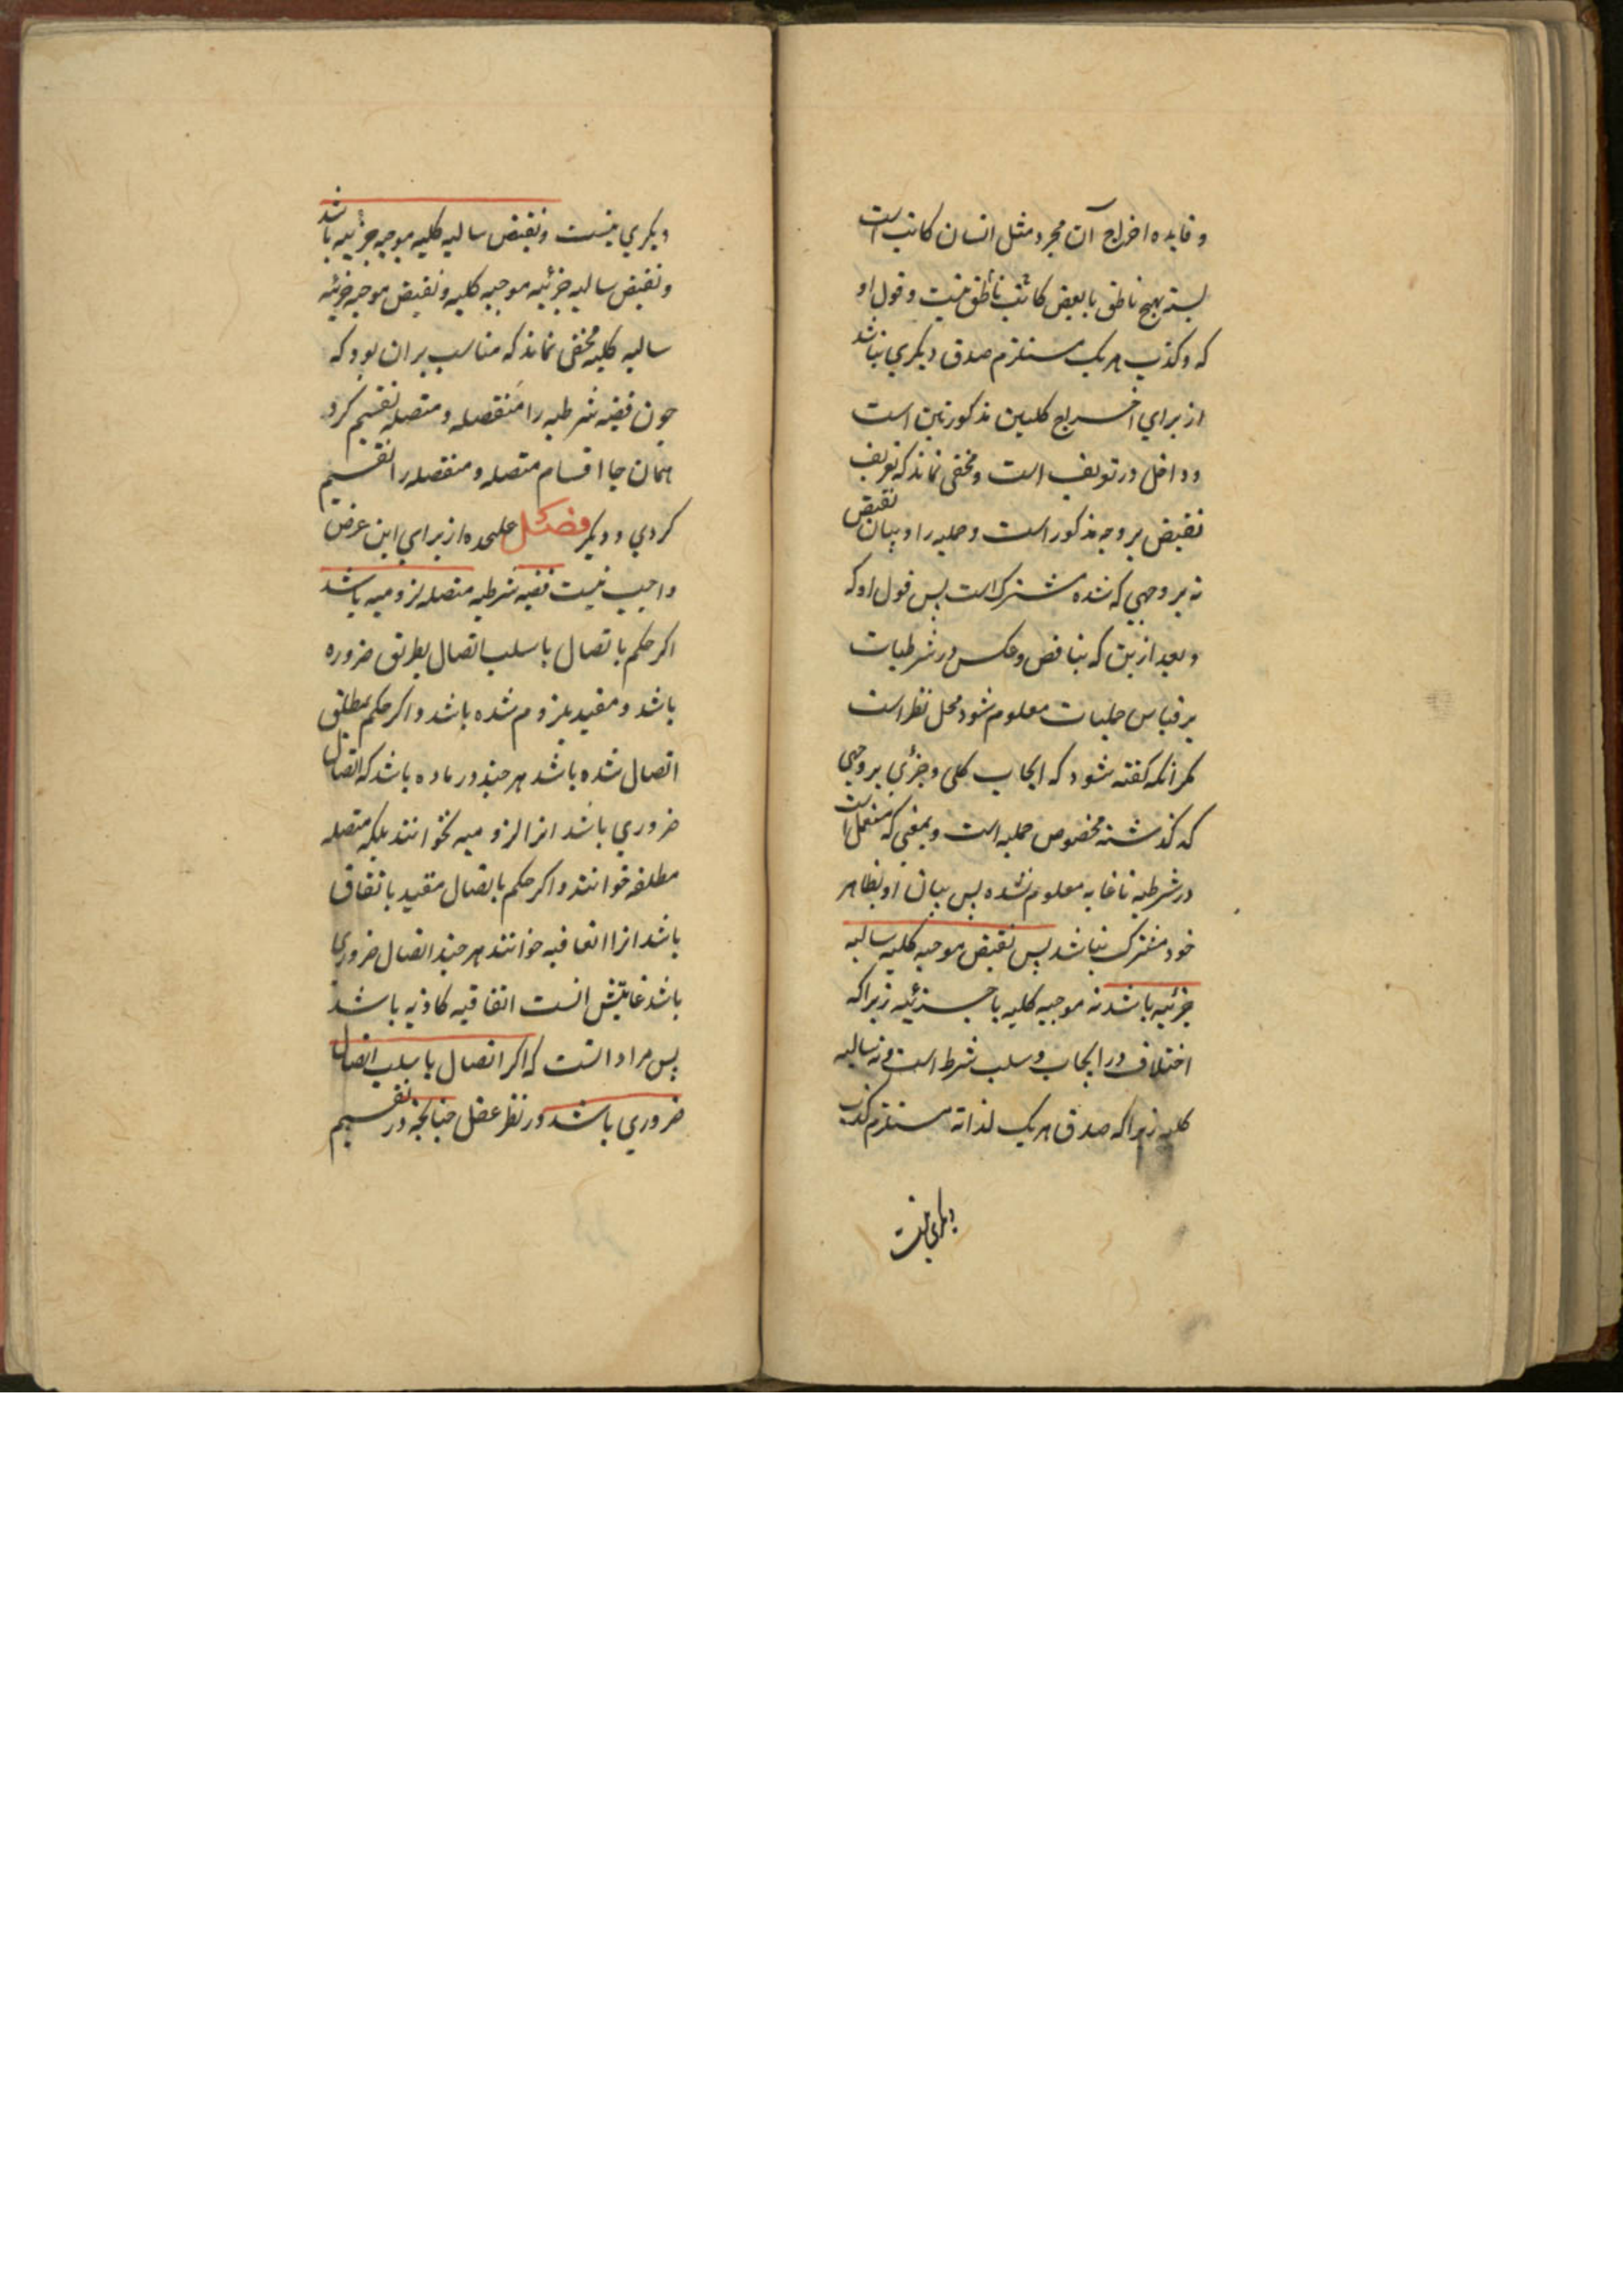 و فایده اخراج آن مجرد مثل انسان کاتب است
بسته بهیچ ناطق یا بعض کاتب ناطق نیست و قول او
که و کذب هر یک مستلزم صدق دیکری نباشد
از برای اخراج کلیین مذکورتین است
و داخل در تعریف است و مخفی نماند که تعریف
نقیض بر وجه مذکور است و حملیه را و بیان نقیض
نه بر وجهی که شده مشترک است پس قول او که
و بعد ازین که تناقض و عکس در شرطیات
بر قیاس حملیات معلوم شود محل نظر است
مکر آنکه کفته شود که ایجاب کلی و جزئی بر وجهی
که کذشته مخصوص حملیه است و بمعنی که مستعمل است
در شرطیه تا غایه معلوم نشده پس بیان او بظاهر
خود مشترک نباشد پس نقیض موجبه کلیه سالبه
جزئیه باشد نه موجبه کلیه یا جزئیه زیرا که
اختلاف در ایجاب و سلب شرط است و نه سالبه
کلیه زیرا که صدق هر یک لذاته مستلزم کذب
دیکری نیست
دیکری نیست و نقیض سالبه کلیه موجبه جزئیه باشد
و نقیض سالبه جزئیه موجبه کلیه و نقیض موجبه جزئیه
سالبه کلیه مخفی نماند که مناسب بران بود که
چون قضیه شرطیه را منفصله و متصله تقسیم کرد
همان جا اقسام متصله و منفصله را تقسیم
کردی و دیکر فصل علیحده از برای این غرض
واجب نیست قضیه شرطیه متصله لزومیه باشد
اکر حکم باتصال یا سلب اتصال بطریق ضروره
باشد و مقید بلزوم شده باشد و اکر حکم بمطلق
اتصال شده باشد هر چند در ماده باشد که اتصال
ضروری باشد انرا لزومیه نخوانند بلکه متصله
مطلقه خوانند و اکر حکم باتصال مقید باتفاق
باشد انرا اتفاقیه خوانند هر چند اتصال ضروری
باشد غایتش انست اتفاقیه کاذبه باشد
پس مراد انست که اکر اتصال یا سلب اتصال
ضروری باشد در نظر عقل چنانچه در تقسیم